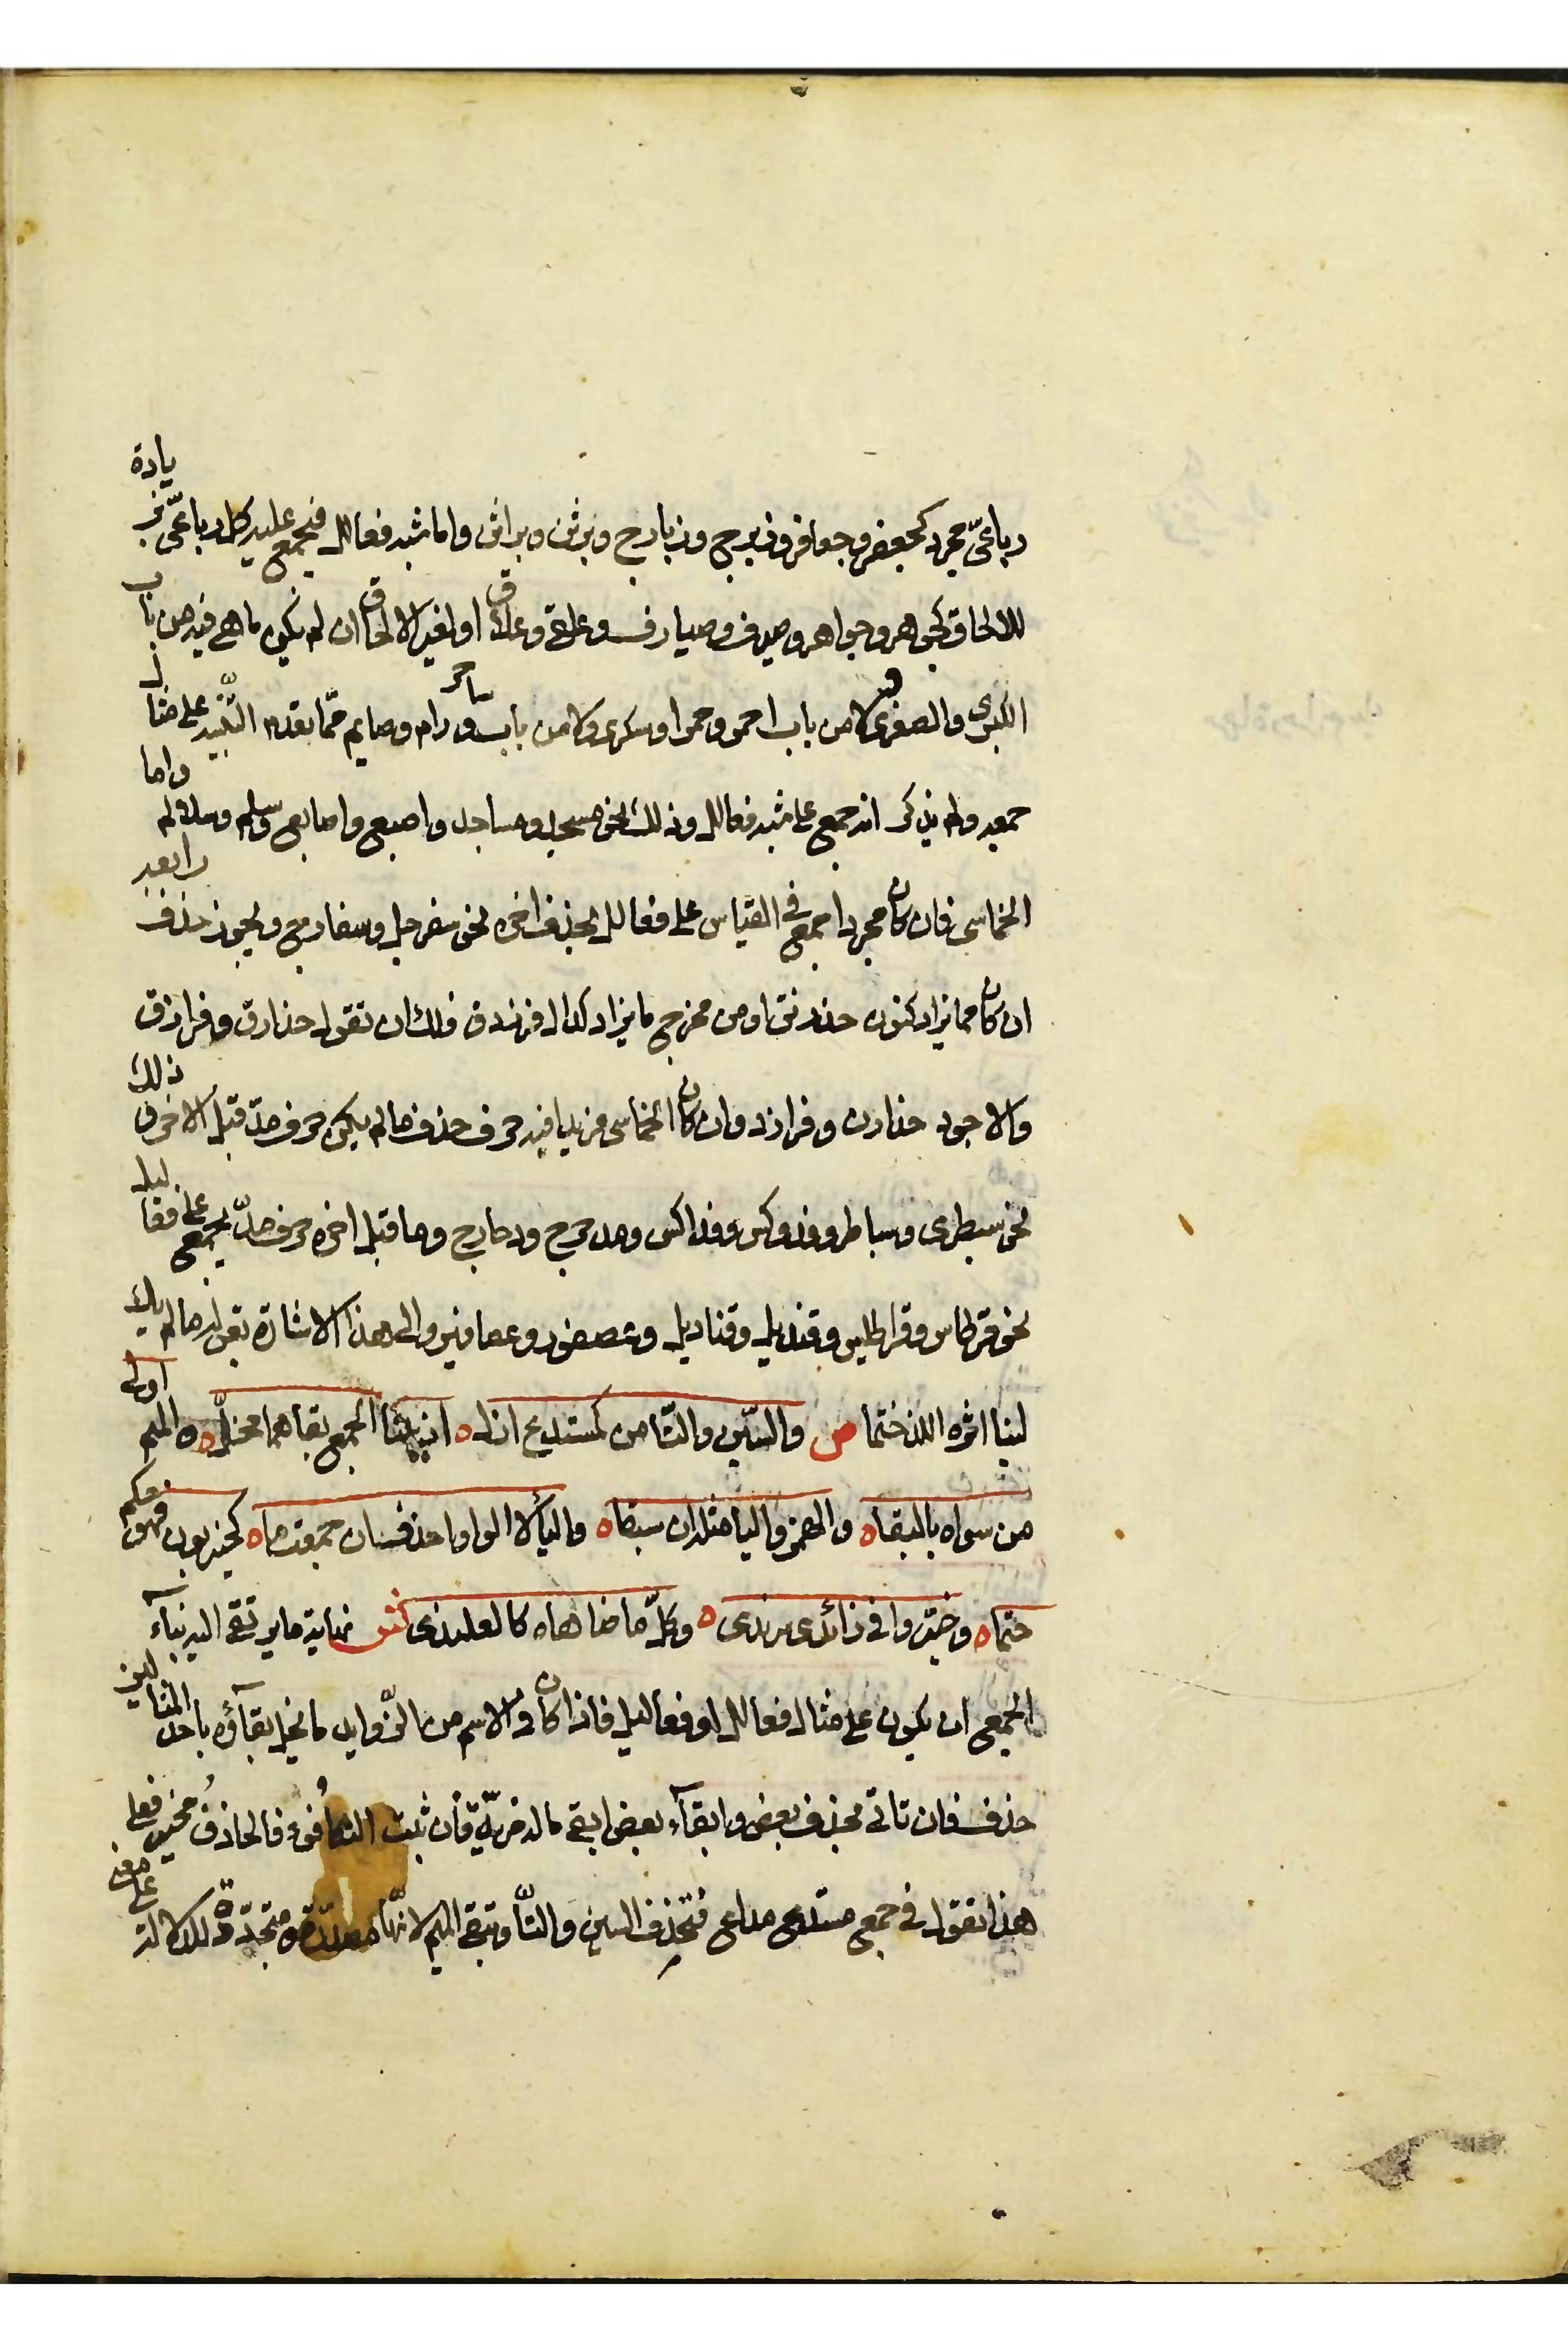 رباعي مجرد كجعفر وجعافر وزبرج وزبارج وبرثن وبراثن واما شبه فعالل فيجمع عليه كل رباعي بزيادة
للالحاق كجوهر وجواهر وصيرف وصيارف وعلقى وعلاق او لغير الالحاق ان لم يكن ما هي فيه من باب
الكبرى والصغرى ولا من باب احمر وحمرا وسكرى ولا من باب ساحر ورام وصايم مما تقدم التنبيه على مثال
جمعه ولم يذكر انه جمع على شبه فعالل وذلك نحو مسجد ومساجد واصبع واصابع وسلم وسلالم واما
الخماسي فان كان مجردا جمع في القياس على فعالل بحذف اخره نحو سفرجل وسفارج ويجوز حذف رابعه
ان كان مما يزاد كنون خدرنق او من مخرج ما يزاد كدال فرزدق فلك ان تقول خدارق وفرازق
والاجود خدارن وفرازد وان كان الخماسي مزيدا فيه حرف حذف ما لم يكن حرف مد قبل الاخر وذلك
نحو سبطرى وسباطر وفدوكس وفداكس ومدحرج ودحارج وما قبل اخره حرف مد يجمع على فعاليل
نحو قرطاس وقراطيس وقنديل وقناديل وعصفور وعصافير والى هذا الاشارة بقوله ما لم يك
لينا اثره اللذ ختما ص والسين والتا من كمستدع ازل ه اذ ببنا الجمع بقاهما مخل ه والميم اولى
من سواه بالبقا ه والهمز واليا مثله ان سبقا ه واليا لا الواو احذف ان جمعت ما ه كحيزبون فهو حكم
حتما ه وخيروا في زائدي سرندى ه وكل ما ضاهاه كالعلندى ش نهاية ما يرتقي اليه بناء
الجمع ان يكون على مثال فعالل او فعاليل فاذا كان في الاسم من الزوايد ما يخل بقاؤه باحد المثالين
حذف فان تاتى بحذف بعض وابقاء بعض ابقي ما له مزية فان ثبت التكافؤ فالحاذف مخير فعلى
هذا تقول في جمع مستدع مداع فتحذف السين والتا وتبقي الميم لانها مصدرة ومتجددة للدلالة على معنى